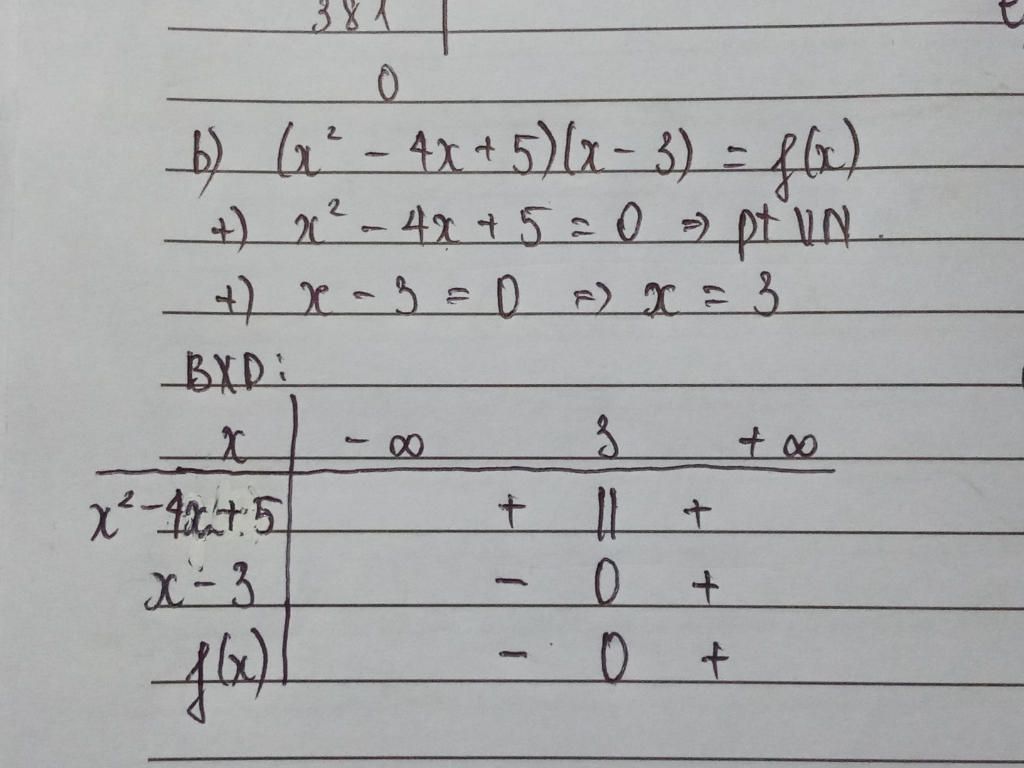 381
0
b) (x² - 4x + 5)(x - 3) = f(x)
+) x² - 4x + 5 = 0 => pt VN.
+) x - 3 = 0 => x = 3
BXD:
x | -∞ 3 +∞
x² - 4x + 5 | + || +
x - 3 | - 0 +
f(x) | - 0 +